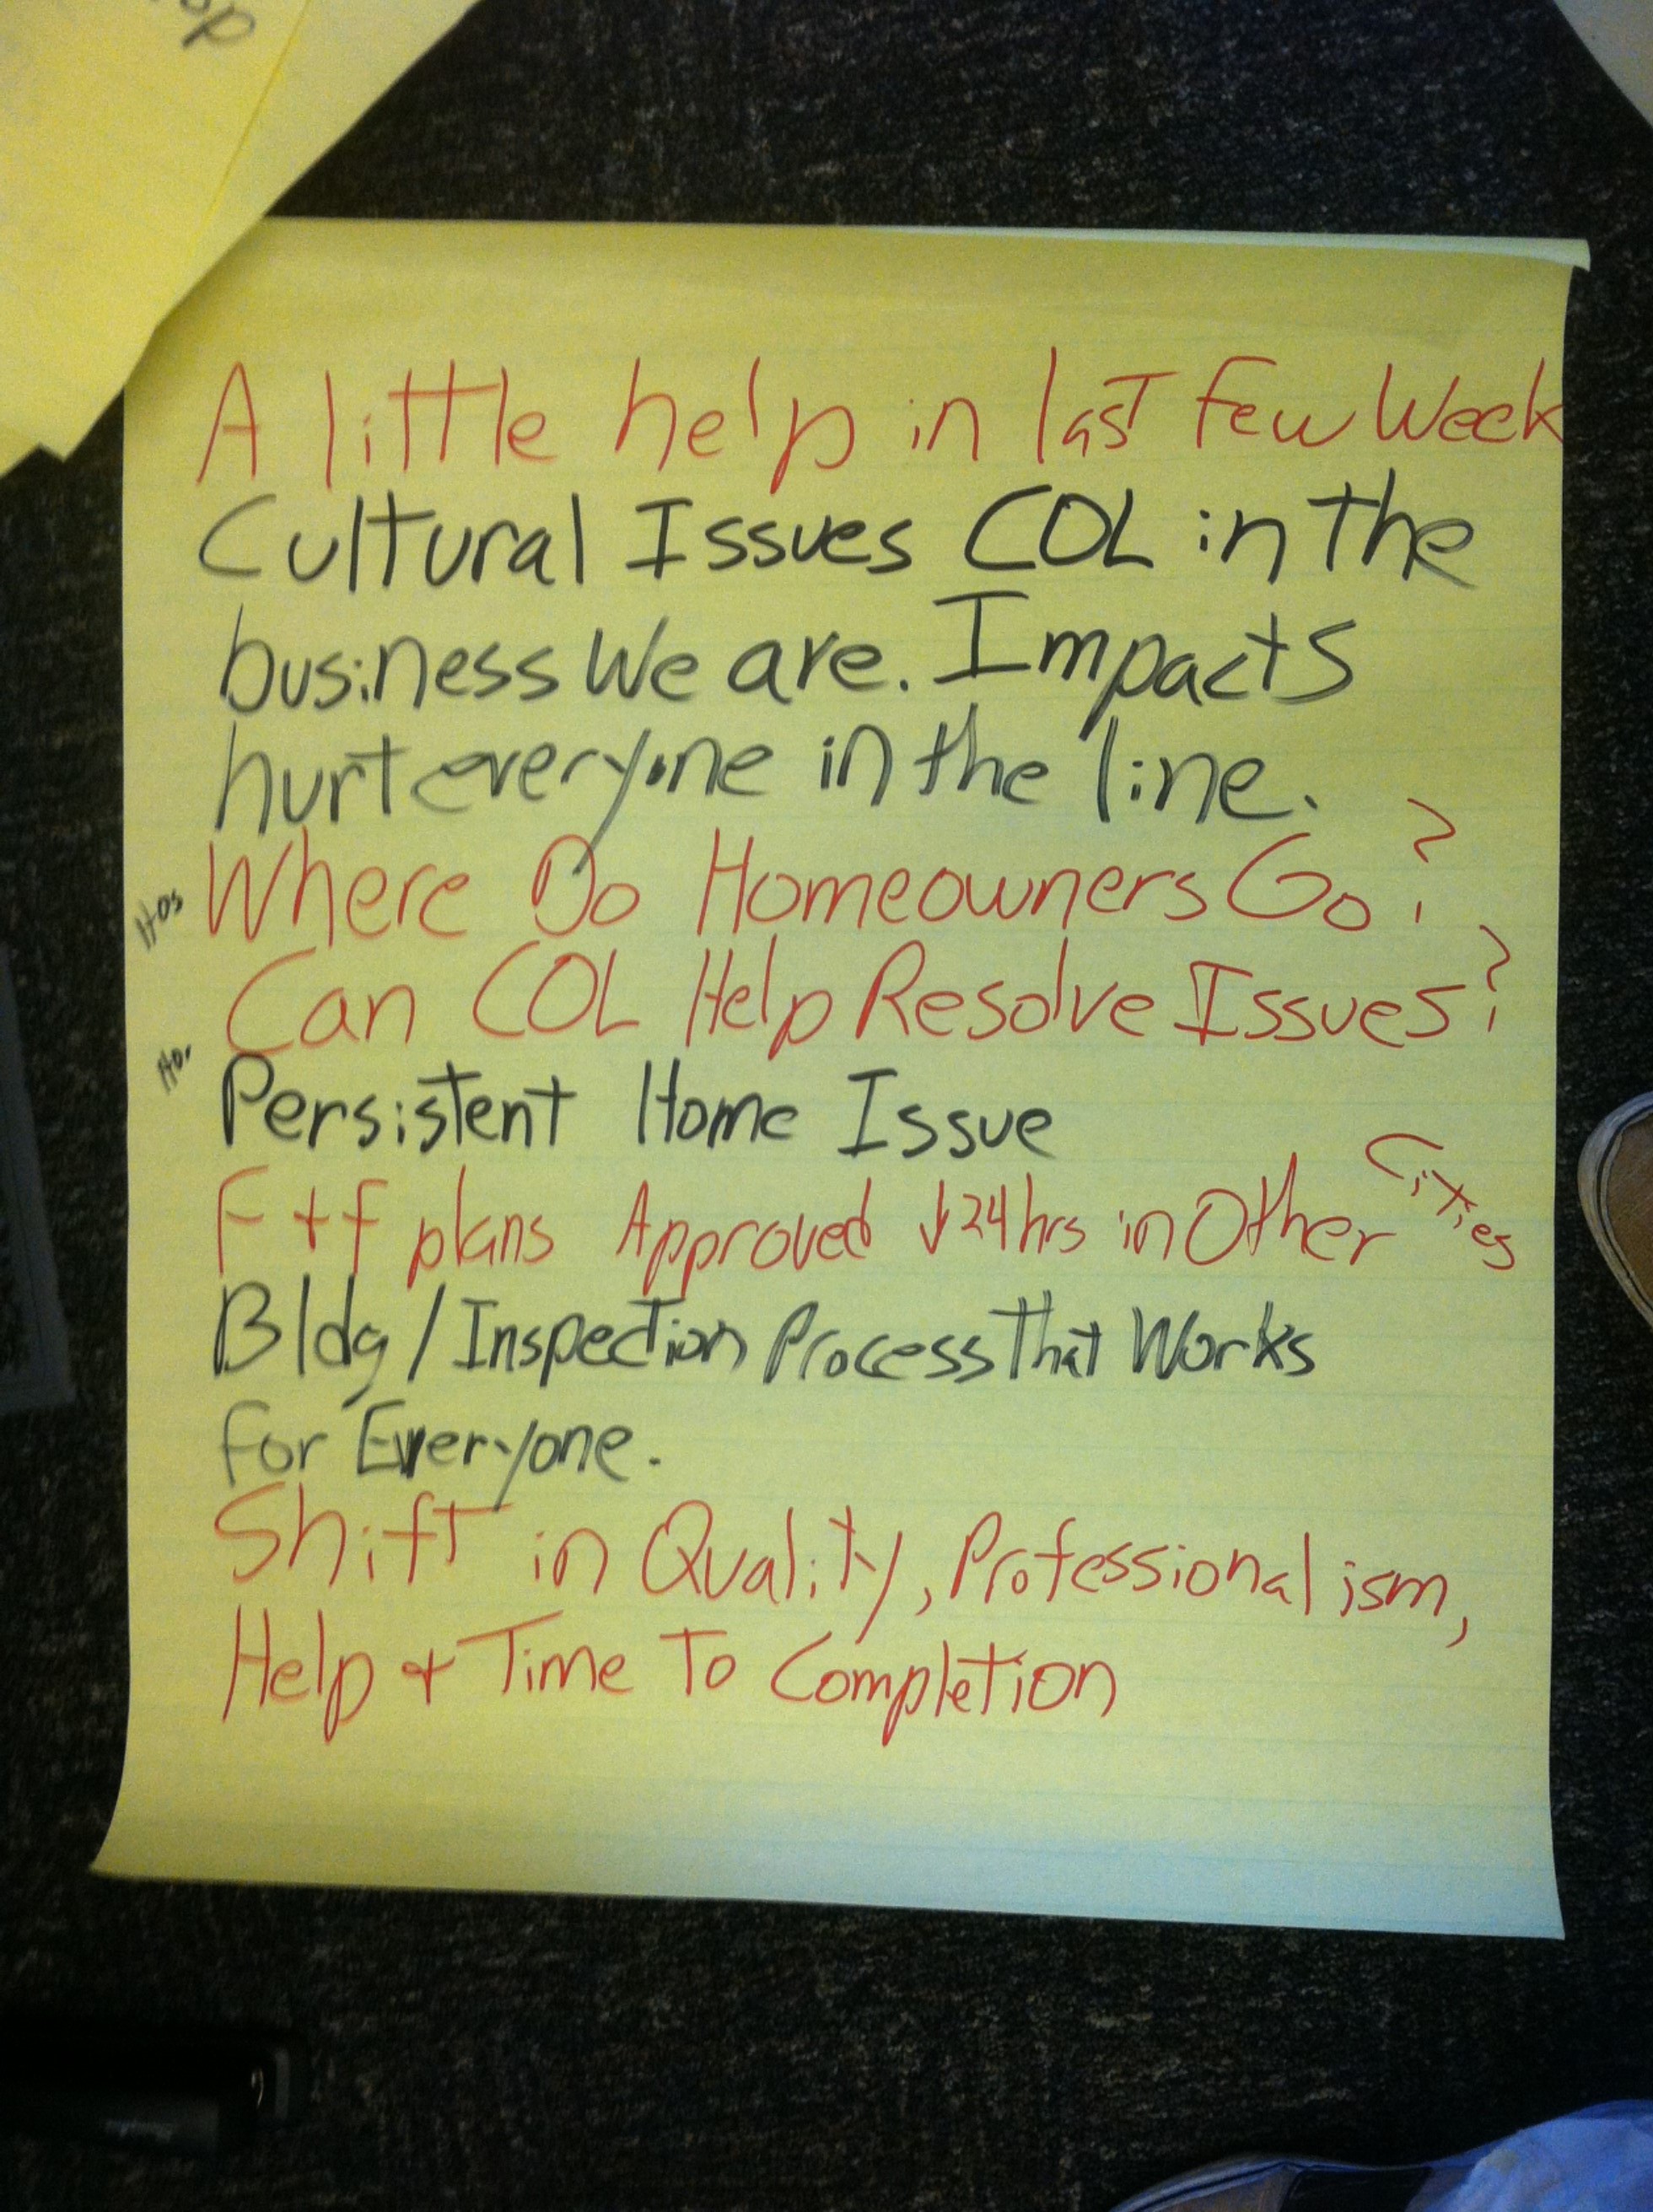 A little help in last few Week
Cultural Issues COL in the
business We are. Impacts
hurt everyone in the line.
Hos Where Do Homeowners Go?
Can COL Help Resolve Issues?
Ho. Persistent Home Issue
F + f plans Approved ↓24hrs in Other Cities
Bldg/Inspection Process That Works
for Everyone.
Shift in Quality, Professionalism,
Help + Time To Completion